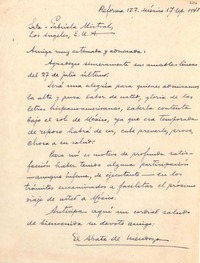 Reforma 137. México 17 Sep. 1948
Srta. Gabriela Mistral,
Los Angeles, E.U.A.
Amiga muy estimada y admirada:
Agradezco sinceramente su amable líneas
del 27 de julio último.
Cada día somos más quienes admiramos
la alta y pura labor de usted, gloria de las
letras hispanoamericanas, saberla contenta
bajo el sol de México, ya que esa temporada
entre nosotros habrá de ser, cabe preverlo, prove-
chosa a su salud.
Para mí es motivo de profunda satis-
facción haber tenido alguna participación
—aunque ínfima, de ejecutante— en los
trámites encaminados a facilitar el próximo
viaje de usted a México.
Anticipa aquí un cordial saludo
de bienvenida su devoto amigo.
El Abate de Mendoza